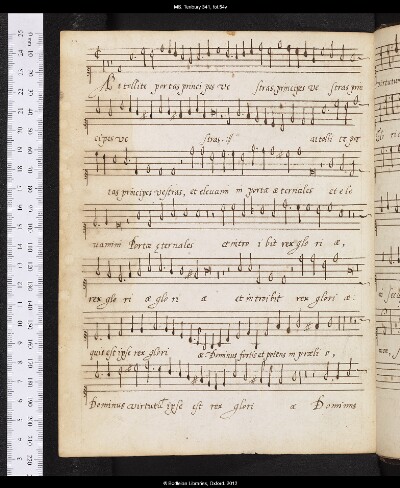 MS. Tenbury 341, fol.54v
Attollite portas principes vestras, principes vestras prin
cipes vestras. :|| attollite por
tas principes vestras, et eleuamini portæ æternales et ele
uamini Portæ æternales et introibit rex gloriæ,
rex gloriæ gloriæ et introibit rex gloriæ.
quis est ipse rex gloriæ? Dominus fortis et potens in prælio,
Dominus virtutū ipse est rex gloriæ Dominus
© Bodleian Libraries, Oxford, 2012